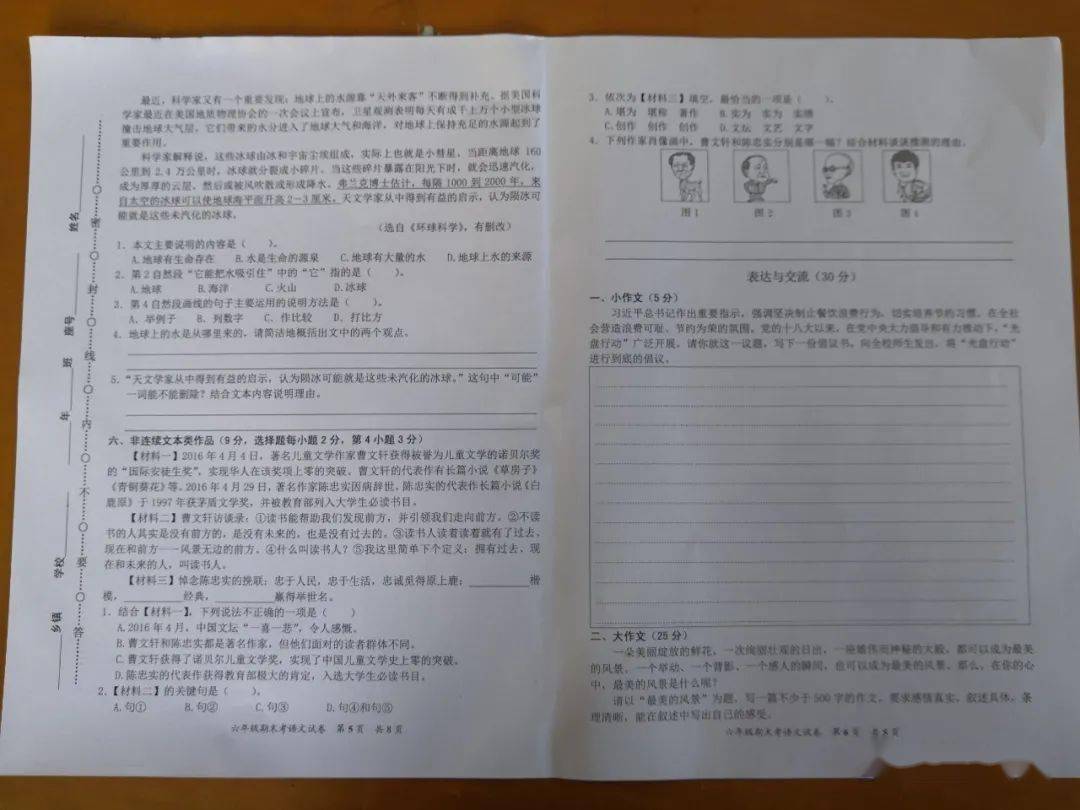 最近，科学家又有一个重要发现：地球上的水源靠“天外来客”不断得到补充。据美国科
学家最近在美国地质物理协会的一次会议上宣布，卫星观测表明每天有成千上万个小型冰球
撞击地球大气层，它们带来的水分进入了地球大气和海洋，对地球上保持充足的水源起到了
重要作用。
科学家解释说，这些冰球由冰和宇宙尘埃组成，实际上也就是小彗星。当距离地球 160
公里到 2.4 万公里时，冰球就分裂成小碎片。当这些碎片暴露在阳光下时，就会迅速汽化，
成为厚厚的云层，然后或被风吹散或形成降水。弗兰克博士估计，每隔 1000 到 2000 年，来
自太空的冰球可以使地球海平面升高 2－3 厘米。天文学家从中得到有益的启示，认为陨冰可
能就是这些未汽化的冰球。
（选自《环球科学》，有删改）
1．本文主要说明的内容是（ ）。
A.地球有生命存在 B.水是生命的源泉 C.地球有大量的水 D.地球上水的来源
2．第 2 自然段“它能把水吸引住”中的“它”指的是（ ）。
A.地球 B.海洋 C.火山 D.冰球
3．第 4 自然段画线的句子主要运用的说明方法是（ ）。
A．举例子 B．列数字 C．作比较 D．打比方
4．地球上的水是从哪里来的，请简洁地概括出文中的两个观点。
5．“天文学家从中得到有益的启示，认为陨冰可能就是这些未汽化的冰球。”这句中“可能”
一词能不能删除？结合文本内容说明理由。
六、非连续文本类作品（9 分，选择题每小题 2 分，第 4 小题 3 分）
【材料一】2016 年 4 月 4 日，著名儿童文学作家曹文轩获得被誉为儿童文学的诺贝尔奖
的“国际安徒生奖”，实现华人在该奖项上零的突破。曹文轩的代表作有长篇小说《草房子》
《青铜葵花》等。2016 年 4 月 29 日，著名作家陈忠实因病辞世。陈忠实的代表作长篇小说《白
鹿原》于 1997 年获茅盾文学奖，并被教育部列入大学生必读书目。
【材料二】曹文轩访谈录：①读书能帮助我们发现前方，并引领我们走向前方。②不读
书的人其实是没有前方的，是没有未来的，也是没有过去的。③读书人读着读着就有了过去、
现在和前方——风景无边的前方。④什么叫读书人？⑤我这里简单下个定义：拥有过去、现
在和未来的人，叫读书人。
【材料三】悼念陈忠实的挽联：忠于人民，忠于生活，忠诚觅得原上鹿；________楷
模，________经典，________赢得举世名。
1．结合【材料一】，下列说法不正确的一项是（ ）
A.2016 年 4 月，中国文坛“一喜一悲”，令人感慨。
B.曹文轩和陈忠实都是著名作家，但他们面对的读者群体不同。
C.曹文轩获得了诺贝尔儿童文学奖，实现了中国儿童文学史上零的突破。
D.陈忠实的代表作获得教育部极大的肯定，入选大学生必读书目。
2.【材料二】的关键句是（ ）。
A.句① B.句② C.句③ D.句④和句⑤
六年级期末考语文试卷 第 5 页 共 8 页
姓名
座号
班
年
学校
乡镇
密
封
线
内
不
要
答
3．依次为【材料三】填空，最恰当的一项是（ ）。
A.堪为 堪称 著作 B.实为 实为 实绩
C.创作 创作 创作 D.文坛 文艺 文字
4．下列作家肖像画中，曹文轩和陈忠实分别是哪一幅？结合材料谈谈推测的理由。
图 1 图 2 图 3 图 4
表达与交流（30 分）
一、小作文（5 分）
习近平总书记作出重要指示，强调坚决制止餐饮浪费行为，切实培养节约习惯，在全社
会营造浪费可耻、节约为荣的氛围。党的十八大以来，在党中央大力倡导和有力推动下，“光
盘行动”广泛开展。请你就这一议题，写下一份倡议书，向全校师生发出，将“光盘行动”
进行到底的倡议。
二、大作文（25 分）
一朵美丽绽放的鲜花，一次绚丽壮观的日出，一座雄伟而神秘的大殿，都可以成为最美
的风景。一个举动、一个背影、一个感人的瞬间，也可以成为最美的风景。那么，在你的心
中，最美的风景是什么呢？
请以“最美的风景”为题，写一篇不少于 500 字的作文。要求感情真实，叙述具体，条
理清晰，能在叙述中写出自己的感受。
六年级期末考语文试卷 第 6 页 共 8 页